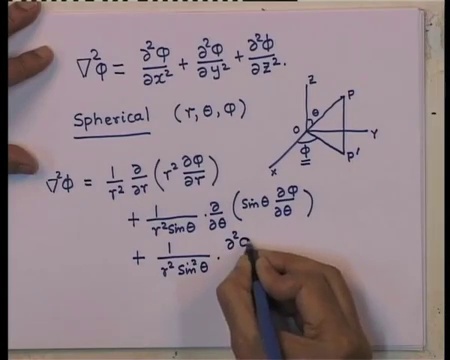 ∇²φ = ∂²φ/∂x² + ∂²φ/∂y² + ∂²φ/∂z².
Spherical (r, θ, φ)
Z
P
θ
O
Y
φ
P'
X
∇²φ = 1/r² ∂/∂r (r² ∂φ/∂r)
+ 1/r² sinθ · ∂/∂θ (sinθ ∂φ/∂θ)
+ 1/r² sin²θ · ∂²